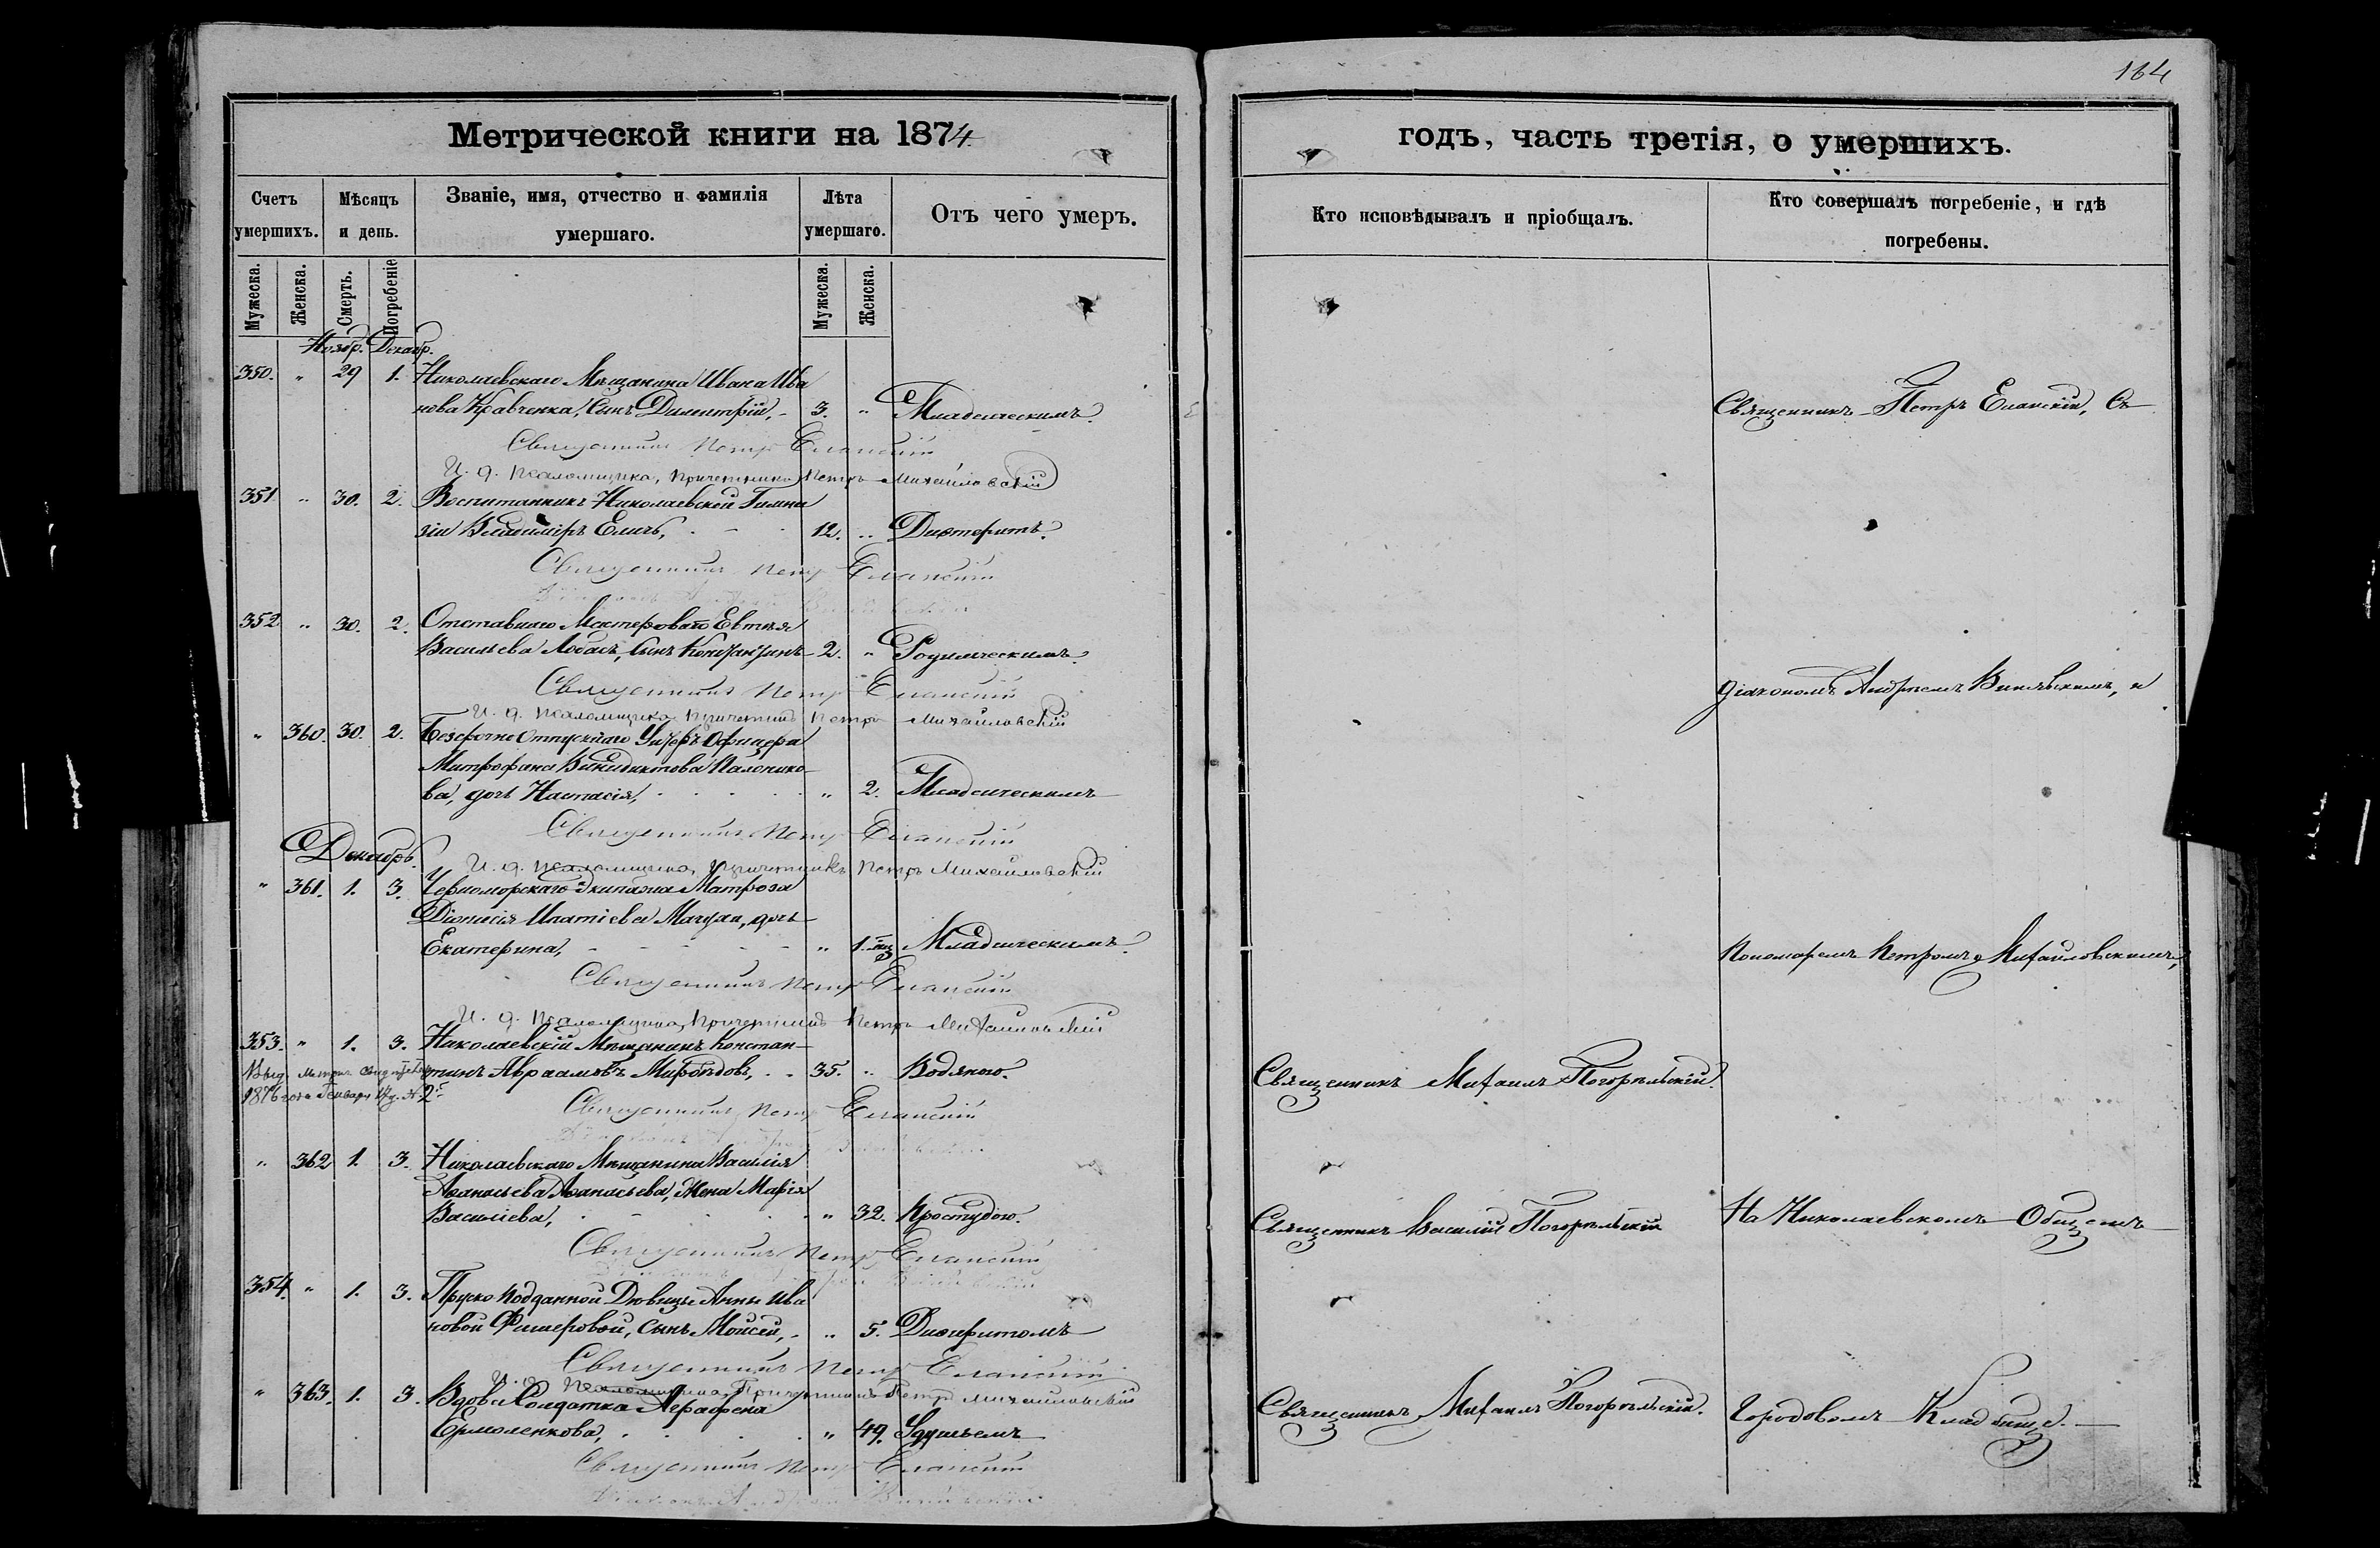 164
Метрической книги на 1874
годъ, часть третія, о умершихъ.
Счетъ умершихъ.
Мѣсяцъ и день.
Званіе, имя, отчество и фамилія умершаго.
Лѣта умершаго.
Отъ чего умеръ.
Кто исповѣдывалъ и пріобщалъ.
Кто совершалъ погребеніе, и гдѣ погребены.
Мужеска.
Женска.
Смерть.
Погребеніе
Мужеска.
Женска.
Ноябр. Декабр.
350. " 29 1. Николаевскаго Мѣщанина Ивана Ива
нова Кравченка, сынъ Димитрій, - 3. " Младенческимъ.
Священникъ Петръ Еланскій, съ
Священникъ Петръ Еланскій
И. д. псаломщика, причетникъ Петръ Михайловскій
351 " 30. 2. Воспитанникъ Николаевской Гимна
зіи Владиміръ Еличъ, 12. " Дифтеритъ.
Священникъ Петръ Еланскій
352 " 30. 2. Отставнаго Мастероваго Евтея
Васильева Лобася, сынъ Константинъ 2. " Родимческимъ.
Священникъ Петръ Еланскій
діакономъ Андреемъ , и
И. д. псаломщика причетникъ Петръ Михайловскій
" 360. 30. 2. Безсрочно Отпускнаго Унтеръ Офицера
Митрофана Викидиктова
ва, дочь Настасія, " 2. Младенческимъ
Священникъ Петръ Еланскій
Декабрь.
И. д. псаломщика, причетникъ Петръ Михайловскій
" 361. 1. 3. Черноморскаго Экипажа Матроза
Діонисія Ипатіева Мачула, дочь
Екатерина, " 1. Младенческимъ.
Пономаремъ Петромъ Михайловскимъ,
Священникъ Петръ Еланскій
И. д. псаломщика, причетникъ Петръ Михайловскій
353. " 1. 3. Николаевскій Мѣщанинъ Констан-
тинъ Авраамовъ 35. " Водяною.
Священникъ Михаилъ Погорѣльскій.
Выд. Метрич. свидѣтель
1876 года Генваря 17 д. № 2й
Священникъ Петръ Еланскій
" 362 1. 3. Николаевскаго Мѣщанина Василія
Аѳанасьева Аѳанасьева, жена Марія
Василіева, " 32. Простудою.
Священникъ Василій Погорѣльскій
На Николаевскомъ Общемъ
Священникъ Петръ Еланскій
354. " 1. 3. Пруско подданной Дѣвицы Анны Ива
новой Фишеровой, сынъ Моисей, " 5. Дифтеритомъ
Священникъ Петръ Еланскій
И. д. Псаломщика, Причетникъ Петръ Михайловскій
" 363. 1. 3. Вдова Солдатка Аграфена
Ермоленкова, " 49. Удушьемъ
Священникъ Михаилъ Погорѣльскій.
Городовомъ Кладбище.
Священникъ Петръ Еланскій